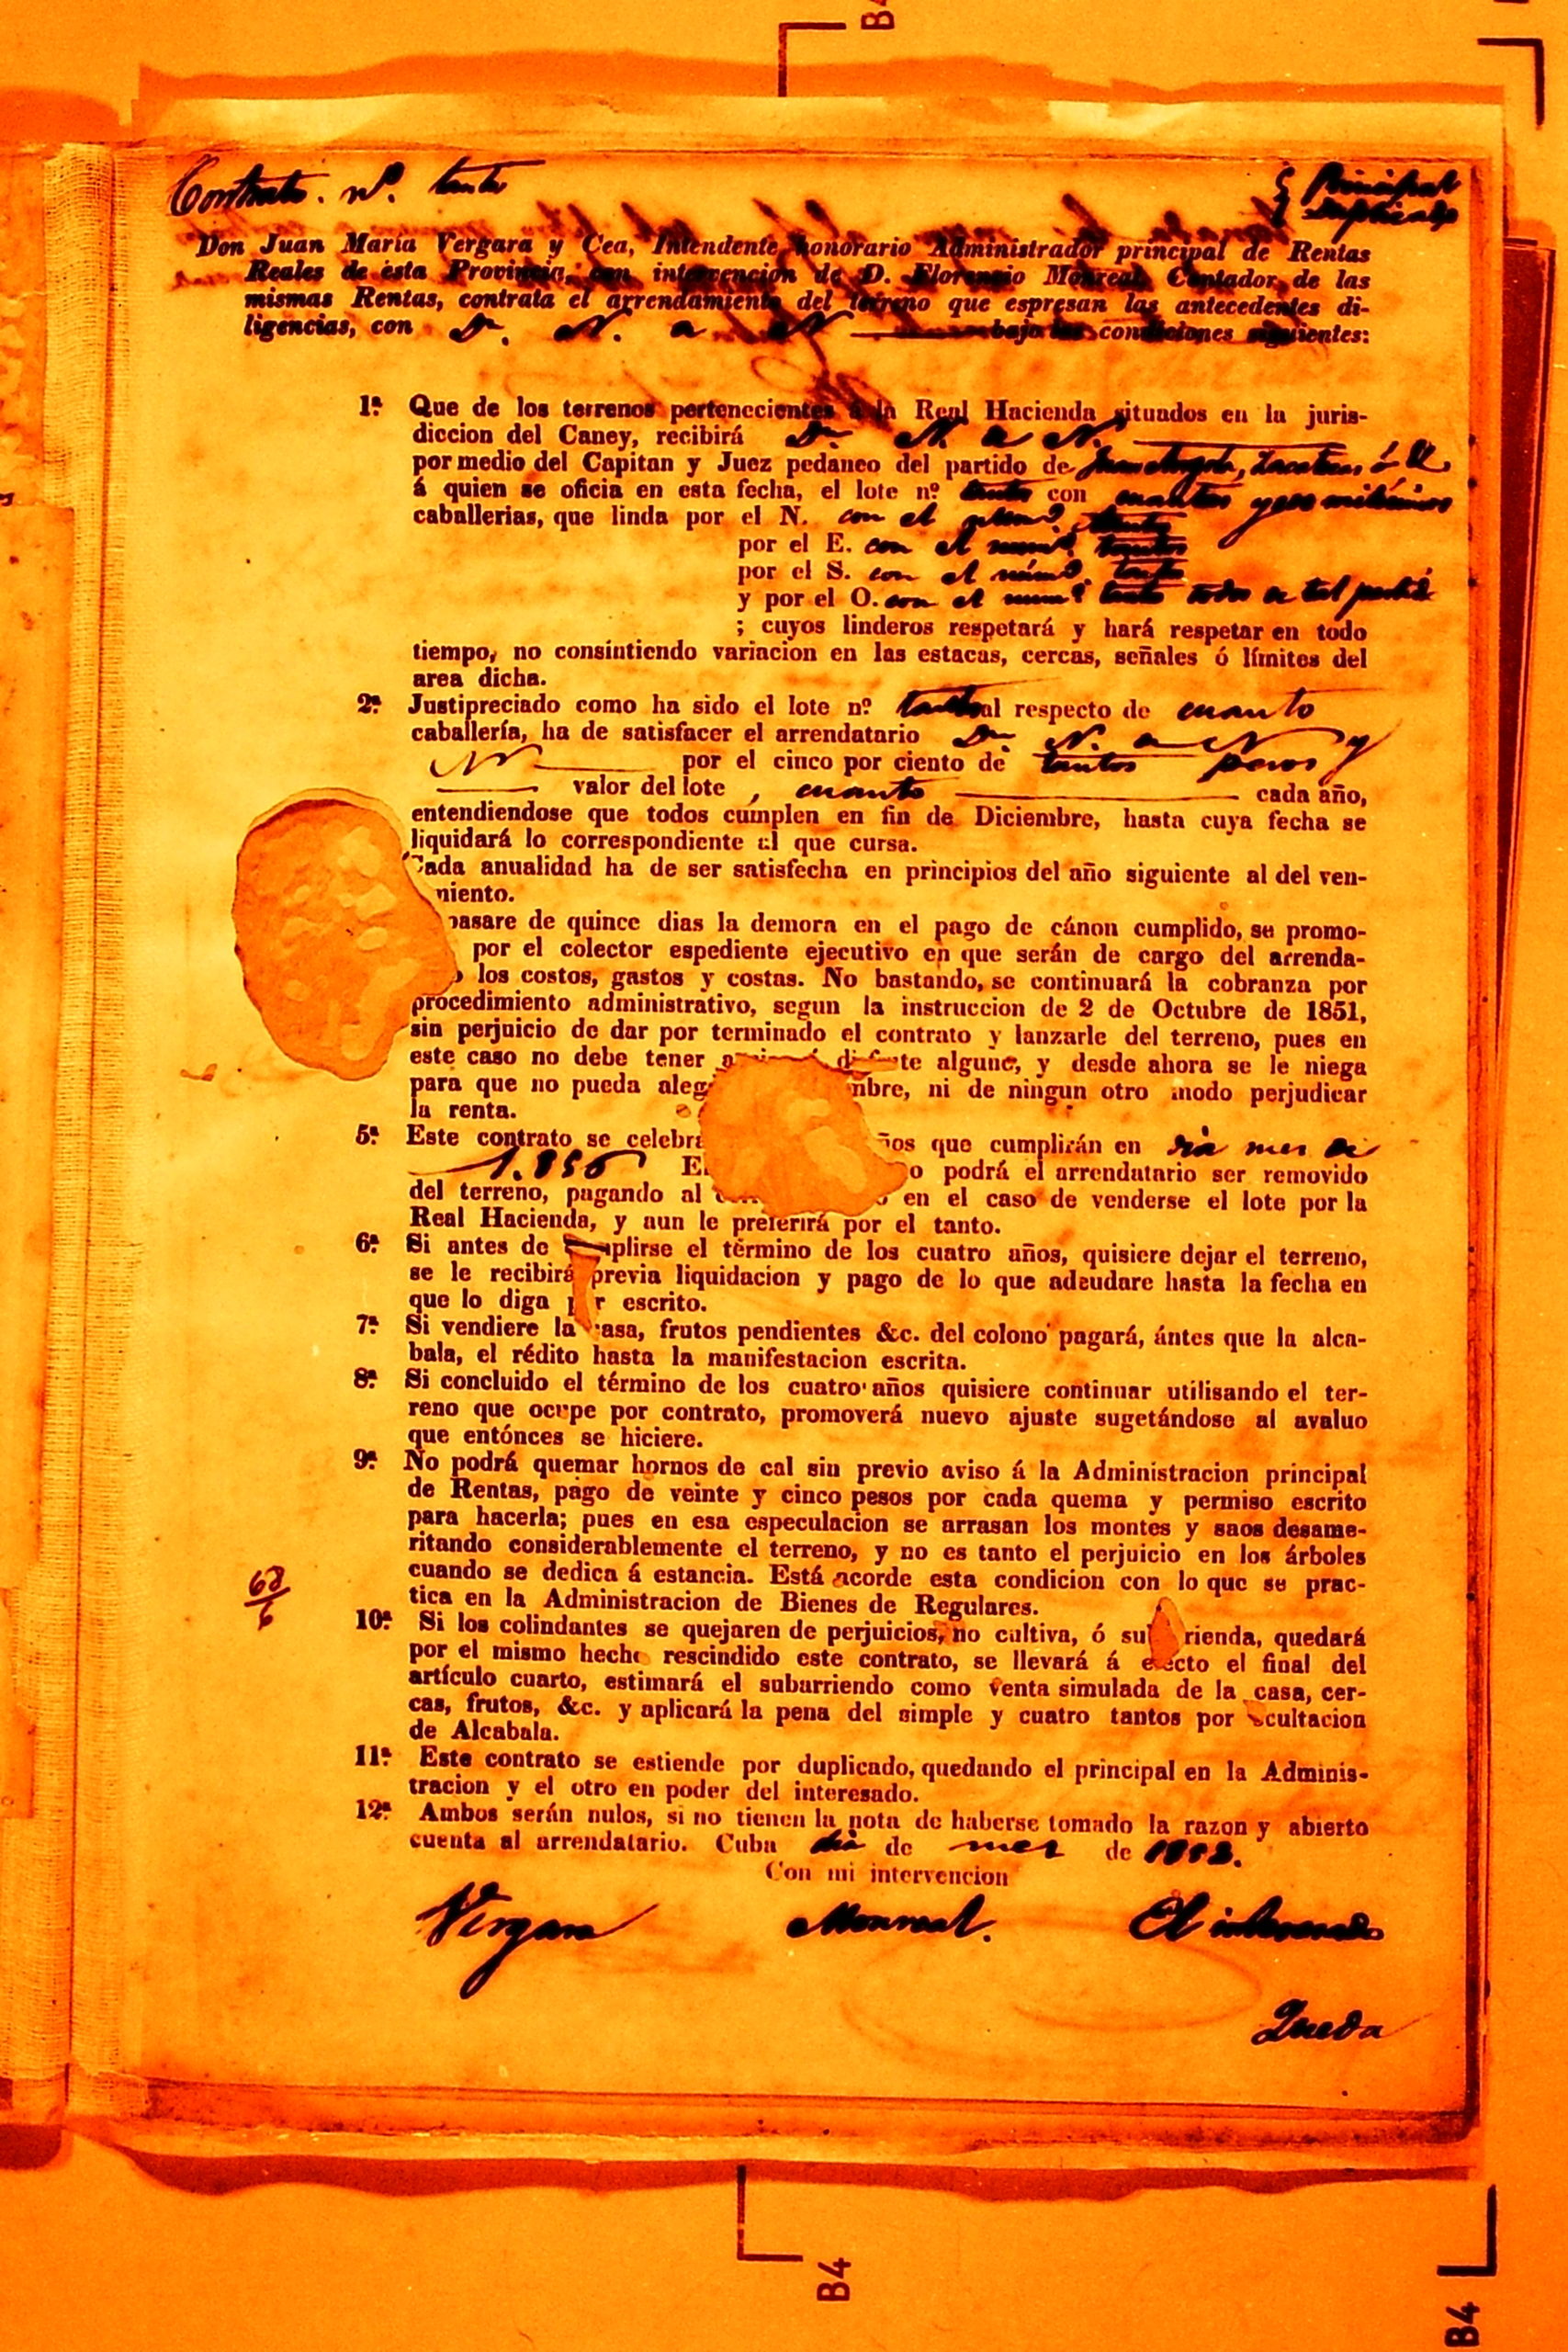 B4
Contrato. nº. tanto
Principal
duplicado
Don Juan María Vergara y Cea, Intendente honorario Administrador principal de Rentas
Reales de esta Provincia, con intervencion de D. Florencio Monreal Contador de las
mismas Rentas, contrata el arrendamiento del terreno que espresan las antecedentes di-
ligencias, con Dn. N. a N bajo las condiciones siguientes:
1ª Que de los terrenos pertenecientes á la Real Hacienda situados en la juris-
diccion del Caney, recibirá Dn. N. a N.
por medio del Capitan y Juez pedaneo del partido de
á quien se oficia en esta fecha, el lote nº tanto con cuantas y
caballerias, que linda por el N. con el tanto
por el E. con el num.º tantos
por el S. con el núm.º tanto
y por el O. con el num.º tanto todos de tal partido
; cuyos linderos respetará y hará respetar en todo
tiempo, no consintiendo variacion en las estacas, cercas, señales ó límites del
area dicha.
2ª Justipreciado como ha sido el lote nº tanto al respecto de cuanto
caballería, ha de satisfacer el arrendatario Dn. N. a N y
N por el cinco por ciento de tantos pesos y
valor del lote , cuanto cada año,
entendiendose que todos cumplen en fin de Diciembre, hasta cuya fecha se
liquidará lo correspondiente al que cursa.
Cada anualidad ha de ser satisfecha en principios del año siguiente al del ven-
miento.
pasare de quince dias la demora en el pago de cánon cumplido, se promo-
por el colector espediente ejecutivo en que serán de cargo del arrenda-
o los costos, gastos y costas. No bastando, se continuará la cobranza por
procedimiento administrativo, segun la instruccion de 2 de Octubre de 1851,
sin perjuicio de dar por terminado el contrato y lanzarle del terreno, pues en
este caso no debe tener te alguno, y desde ahora se le niega
para que no pueda aleg mbre, ni de ningun otro modo perjudicar
la renta.
5ª Este contrato se celebra ños que cumplirán en dia mes de
1.856 E o podrá el arrendatario ser removido
del terreno, pagando al o en el caso de venderse el lote por la
Real Hacienda, y aun le preferirá por el tanto.
6ª Si antes de mplirse el término de los cuatro años, quisiere dejar el terreno,
se le recibirá previa liquidacion y pago de lo que adeudare hasta la fecha en
que lo diga p r escrito.
7ª Si vendiere la casa, frutos pendientes &c. del colono pagará, ántes que la alca-
bala, el rédito hasta la manifestacion escrita.
8ª Si concluido el término de los cuatro años quisiere continuar utilisando el ter-
reno que ocupe por contrato, promoverá nuevo ajuste sugetándose al avaluo
que entónces se hiciere.
9ª No podrá quemar hornos de cal sin previo aviso á la Administracion principal
de Rentas, pago de veinte y cinco pesos por cada quema y permiso escrito
para hacerla; pues en esa especulacion se arrasan los montes y saos desame-
ritando considerablemente el terreno, y no es tanto el perjuicio en los árboles
cuando se dedica á estancia. Está acorde esta condicion con lo que se prac-
tica en la Administracion de Bienes de Regulares.
10ª Si los colindantes se quejaren de perjuicios, no cultiva, ó su rienda, quedará
por el mismo hecho rescindido este contrato, se llevará á efecto el final del
artículo cuarto, estimará el subarriendo como venta simulada de la casa, cer-
cas, frutos, &c. y aplicará la pena del simple y cuatro tantos por ocultacion
de Alcabala.
11ª Este contrato se estiende por duplicado, quedando el principal en la Adminis-
tracion y el otro en poder del interesado.
12ª Ambos serán nulos, si no tienen la nota de haberse tomado la razon y abierto
cuenta al arrendatario. Cuba dia de mes de 1852.
Con mi intervencion
Vergara Monreal. El interesado
Queda
B4
B4